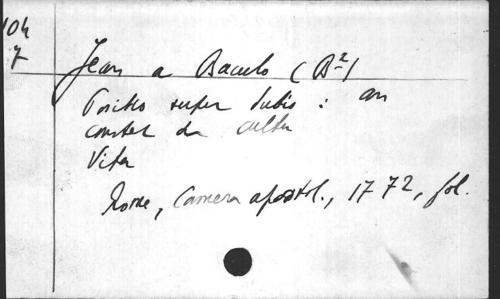 104
7
Jean a Baculo (B²)
Positio super dubio : an
constet de cultu
Vita
Rome, Camera apostol., 1772, fol.